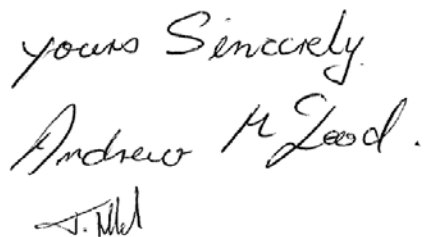 yours Sincerely
Andrew McLeod.